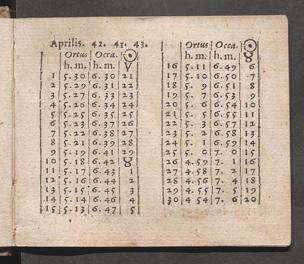 Aprilis. 42. 41. 43.
Ortus Occa. ☉
h. m. h. m. ♈
1 5.30 6.30 21
2 5.29 6.31 22
3 5.27 6.33 23
4 5.26 6.34 24
5 5.25 6.35 25
6 5.23 6.37 26
7 5.22 6.38 27
8 5.21 6.39 28
9 5.19 6.41 29
10 5.18 6.42 ♉
11 5.17 6.43 1
12 5.16 6.44 2
13 5.15 6.45 3
14 5.14 6.46 4
15 5.13 6.47 5
Ortus Occa. ☉
h. m. h. m. ♉
16 5.11 6.49 6
17 5.10 6.50 7
18 5. 9 6.51 8
19 5. 7 6.53 9
20 5. 6 6.54 10
21 5. 5 6.55 11
22 5. 3 6.57 12
23 5. 2 6.58 13
24 5. 1 6.59 14
25 5. 0 7. 0 15
26 4.59 7. 1 16
27 4.58 7. 2 17
28 4.56 7. 4 18
29 4.55 7. 5 19
30 4.54 7. 6 20